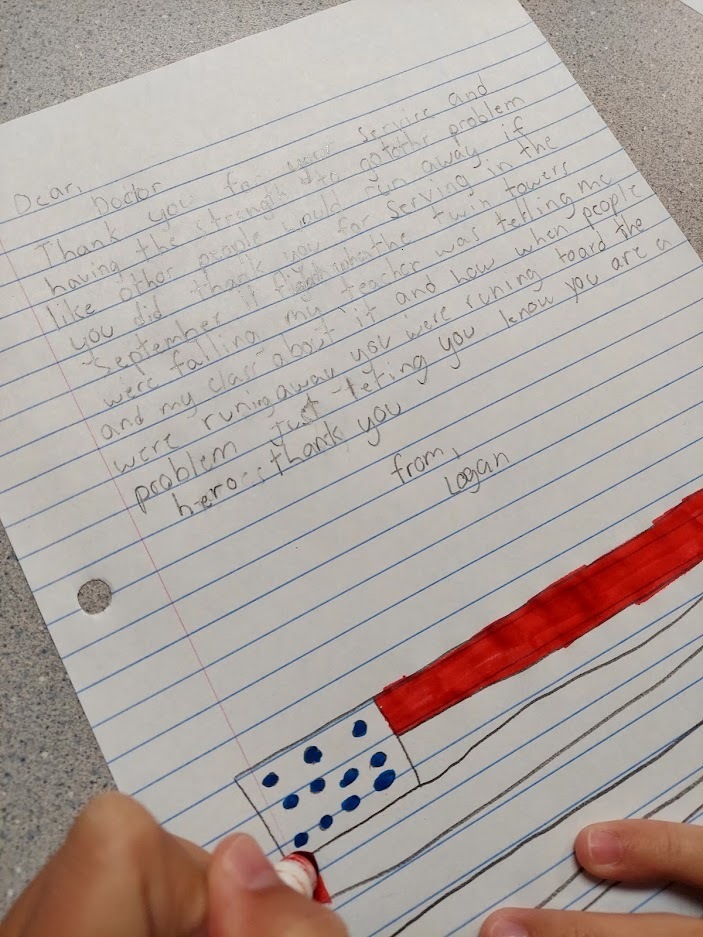 Dear,
Doctor
Thank you for your service and
having the strength to go to the problem
like other people would run away if
you did thank you for serving in the
September 11 when the twin towers
were falling my teacher was telling me
and my class about it and how when people
were runing away you were runing toard the
problem just teling you know you are a
heroes thank you
from,
Logan